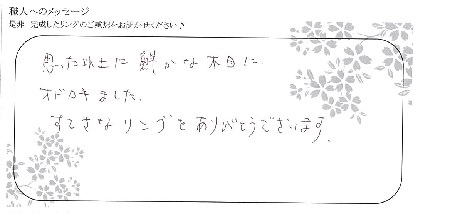 職人へのメッセージ
是非 完成したリングのご感想をお聞かせください♪
思った以上に鮮かな木目に
オドロキました。
すてきなリングをありがとうございます。